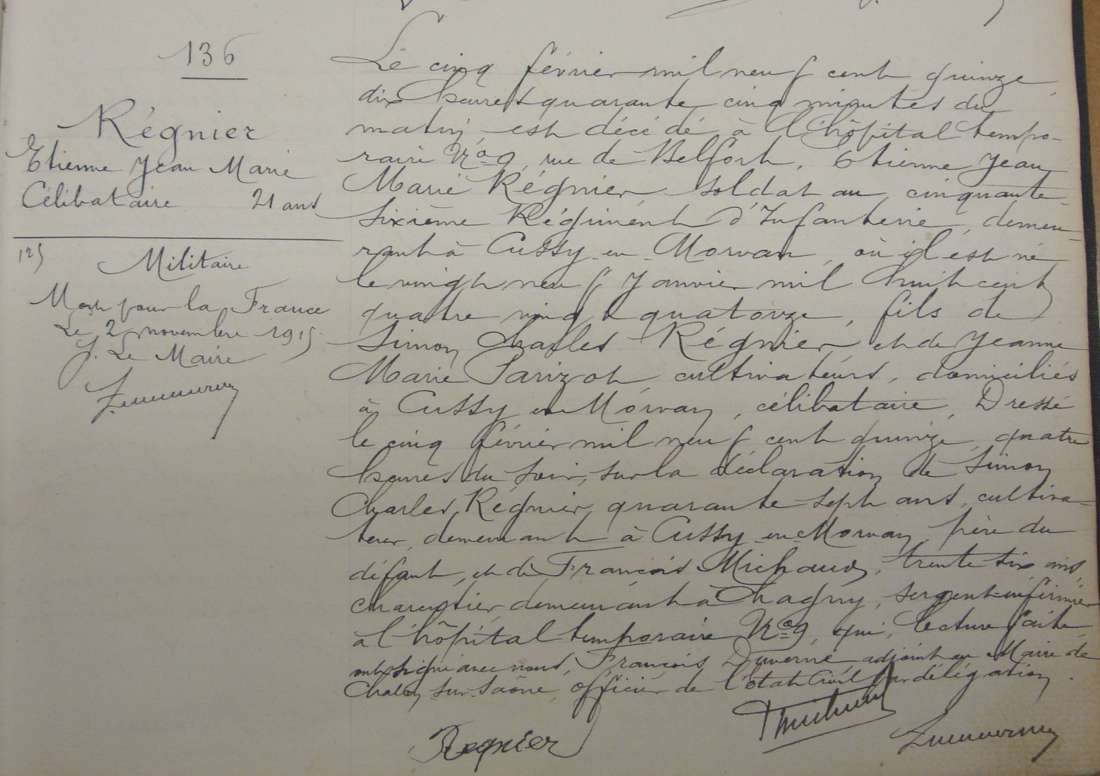 136
Régnier
Etienne Jean Marie
Célibataire 21 ans
Militaire
Mort pour la France
Le 2 novembre 1915
Le Maire
Le cinq février mil neuf cent quinze
dix heures quarante cinq minutes du
matin, est décédé à l'hôpital tempo-
raire No 9, rue de Belfort, Etienne Jean
Marie Régnier soldat au cinquante-
sixième Régiment d'Infanterie, demeu-
rant à Cussy en Morvan, où il est né
le vingt neuf Janvier mil huit cent
quatre vingt quatorze, fils de
Simon Charles Régnier et de Jeanne
Marie Parizot, cultivateurs, domiciliés
à Cussy en Morvan, célibataire, Dressé
le cinq février mil neuf cent quinze, quatre
heures du soir, sur la déclaration de Simon
Charles Régnier, quarante sept ans, cultiva-
teur, demeurant à Cussy en Morvan, père du
défunt, et de François Michaud, trente six ans
charcutier, demeurant à Chagny, sergent infirmier
à l'hôpital temporaire No 9, qui, lecture faite
ont signé avec nous, François Duverne, adjoint au Maire de
Chalon sur Saône, officier de l'état Civil par délégation.
Regnier